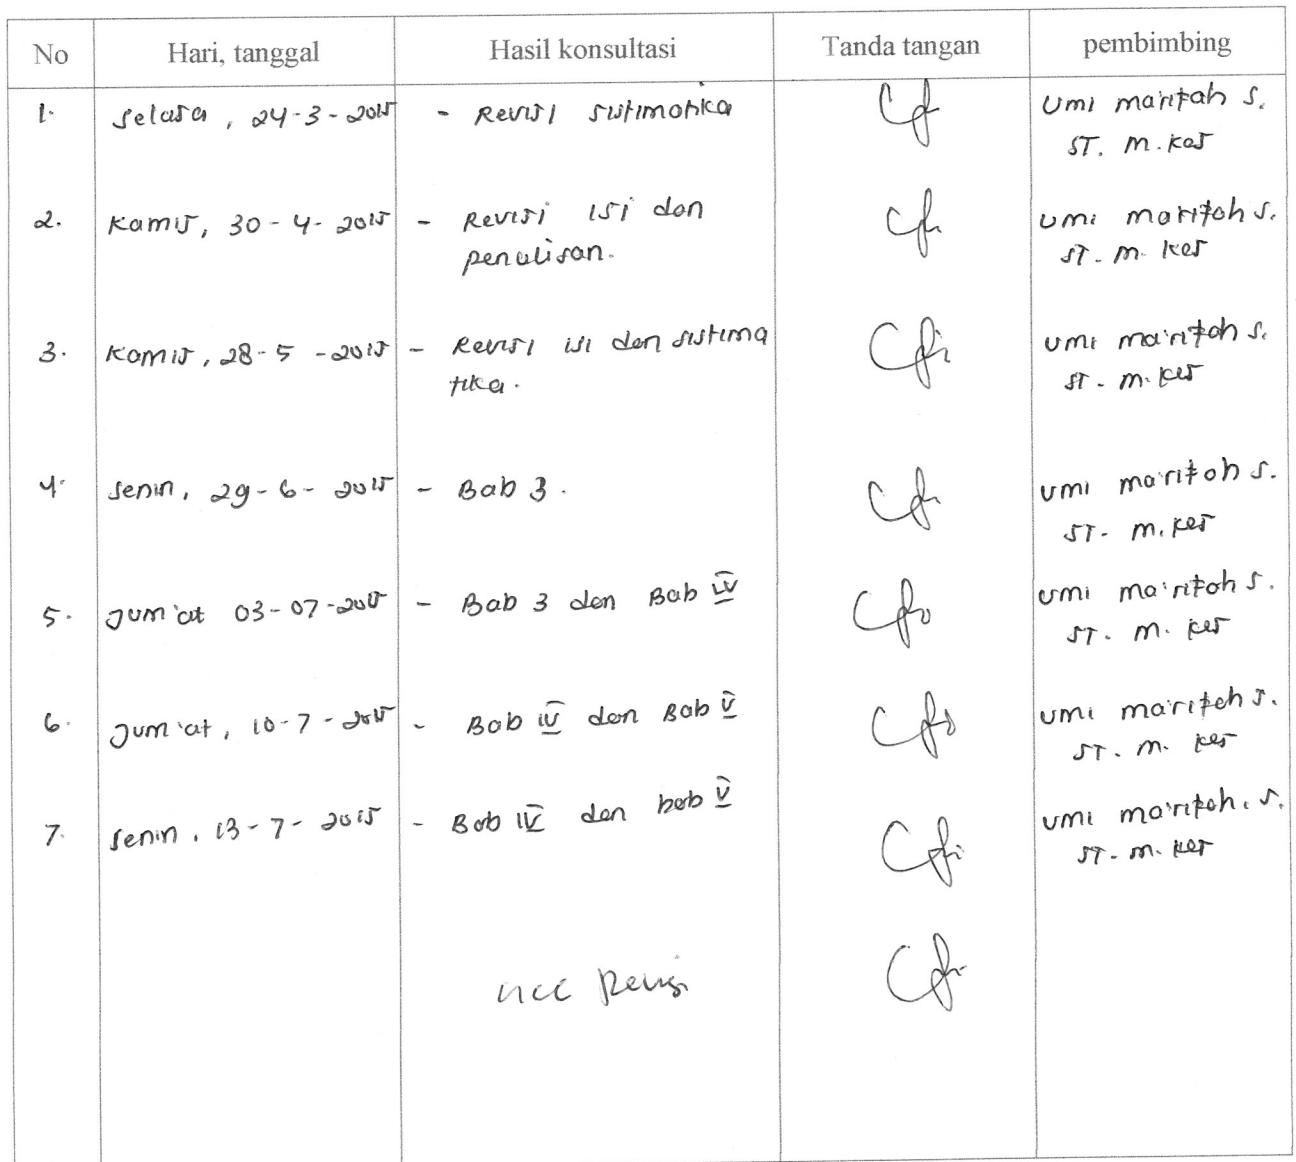 No Hari, tanggal Hasil konsultasi Tanda tangan pembimbing
1. Selasa, 24-3-2015 - Revisi sistimatika Umi marifah S.
ST. M. Kes
2. Kamis, 30-4-2015 - Revisi isi dan Umi marifah S.
penulisan. ST. M. Kes
3. Kamis, 28-5-2015 - Revisi isi dan sistima Umi ma'rifah S.
tika. ST. M. Kes
4. Senin, 29-6-2015 - Bab 3. Umi ma'rifah S.
ST. M. Kes
5. Jum'at 03-07-2015 - Bab 3 dan Bab IV Umi ma'rifah S.
ST. M. Kes
6. Jum'at, 10-7-2015 - Bab IV dan Bab V Umi marifah S.
ST. M. Kes
7. Senin, 13-7-2015 - Bab IV dan bab V Umi ma'rifah. S.
ST. M. Kes
Revisi